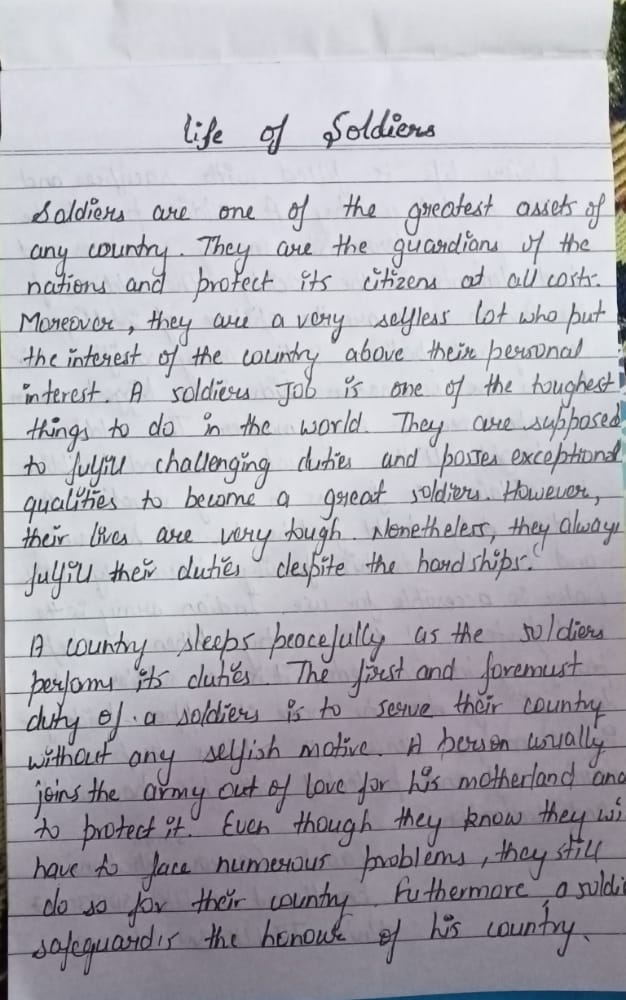 life of Soldiers
Soldiers are one of the greatest assets of
any country. They are the guardians of the
nations and protect its citizens at all costs.
Moreover, they are a very selfless lot who put
the interest of the country above their personal
interest. A soldiers Job is one of the toughest
things to do in the world. They are supposed
to fulfill challenging duties and posses exceptional
qualities to become a great soldiers. However,
their lives are very tough. Nonetheless, they always
fulfill their duties despite the hardships.
A country sleeps peacefully as the soldiers
perfoms its duties. The first and foremust
duty of a soldiers is to serve their country
without any selfish motive. A person usually
joins the army out of love for his motherland and
to protect it. Even though they know they wi
have to face numerous problems, they still
do so for their country. Futhermore, a soldi
safeguardis the honour of his country.